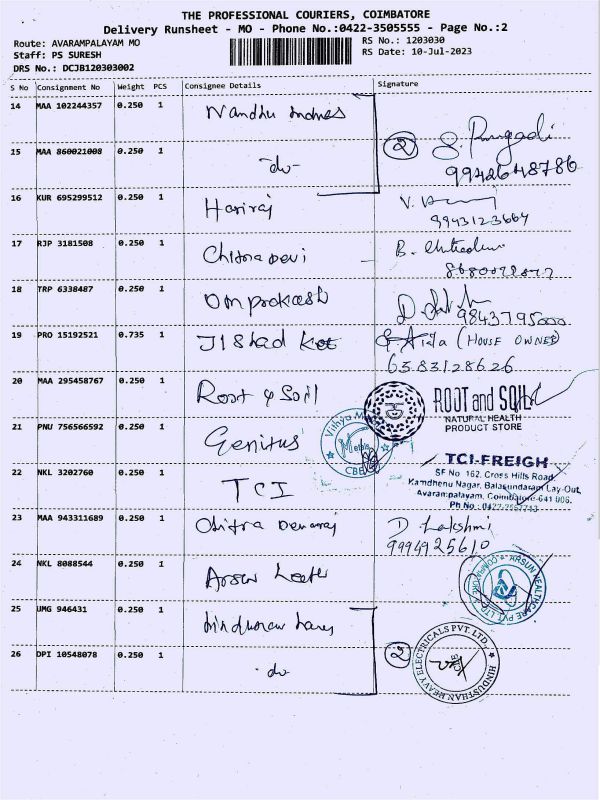 THE PROFESSIONAL COURIERS, COIMBATORE
Delivery Runsheet - MO - Phone No.:0422-3505555 - Page No.:2
Route: AVARAMPALAYAM MO
RS No.: 1203030
Staff: PS SURESH
RS Date: 10-Jul-2023
DRS No.: DCJB120303002
S No Consignment No Weight PCS Consignee Details Signature
14 MAA 102244357 0.250 1 Nandhu
15 MAA 860021008 0.250 1 -do- 2
9942648786
16 KUR 695299512 0.250 1 Hariraj
9943123664
17 RJP 3181508 0.250 1 Chitra Devi B.
18 TRP 6338487 0.250 1 Omprokash
9843795000
19 PRO 15192521 0.735 1 Jishad (HOUSE OWNER)
6383128626
20 MAA 295458767 0.250 1 Root & Soil ROOT and SOIL
NATURAL HEALTH
PRODUCT STORE
21 PNU 756566592 0.250 1 Genitus Vidhya Metals CBE
22 NKL 3202760 0.250 1 TCI TCI-FREIGH
SF No. 162, Cross Hills Road,
Kamdhenu Nagar, Balasundaram Lay-Out,
Avarampalayam, Coimbatore-641 006.
Ph No.: 0422-2557713
23 MAA 943311689 0.250 1 Chitra Devaraj D. Lakshmi
9994925610
24 NKL 8088544 0.250 1 Arsun ARSUN HEALTHCARE PVT LTD
25 UMG 946431 0.250 1
26 DPI 10548078 0.250 1 -do- 2 HINDUSTHAN HEAVY ELECTRICALS PVT. LTD. CBE